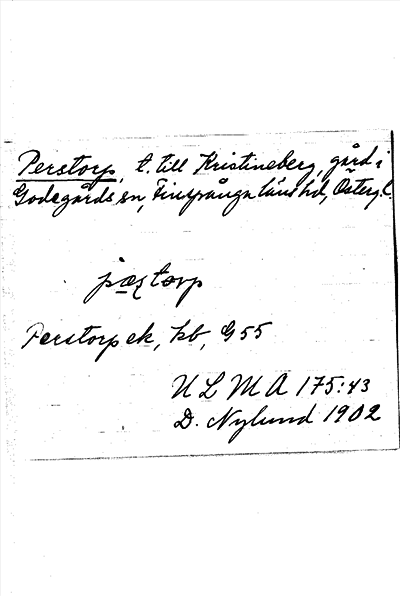 Perstorp, t. till Kristineberg, gård i
Godegårds sn, Finspånga läns hd, Österg. l.
pæʂtorp
Perstorp ek, kb, G 55
U L M A 175:43
D. Nylund 1902